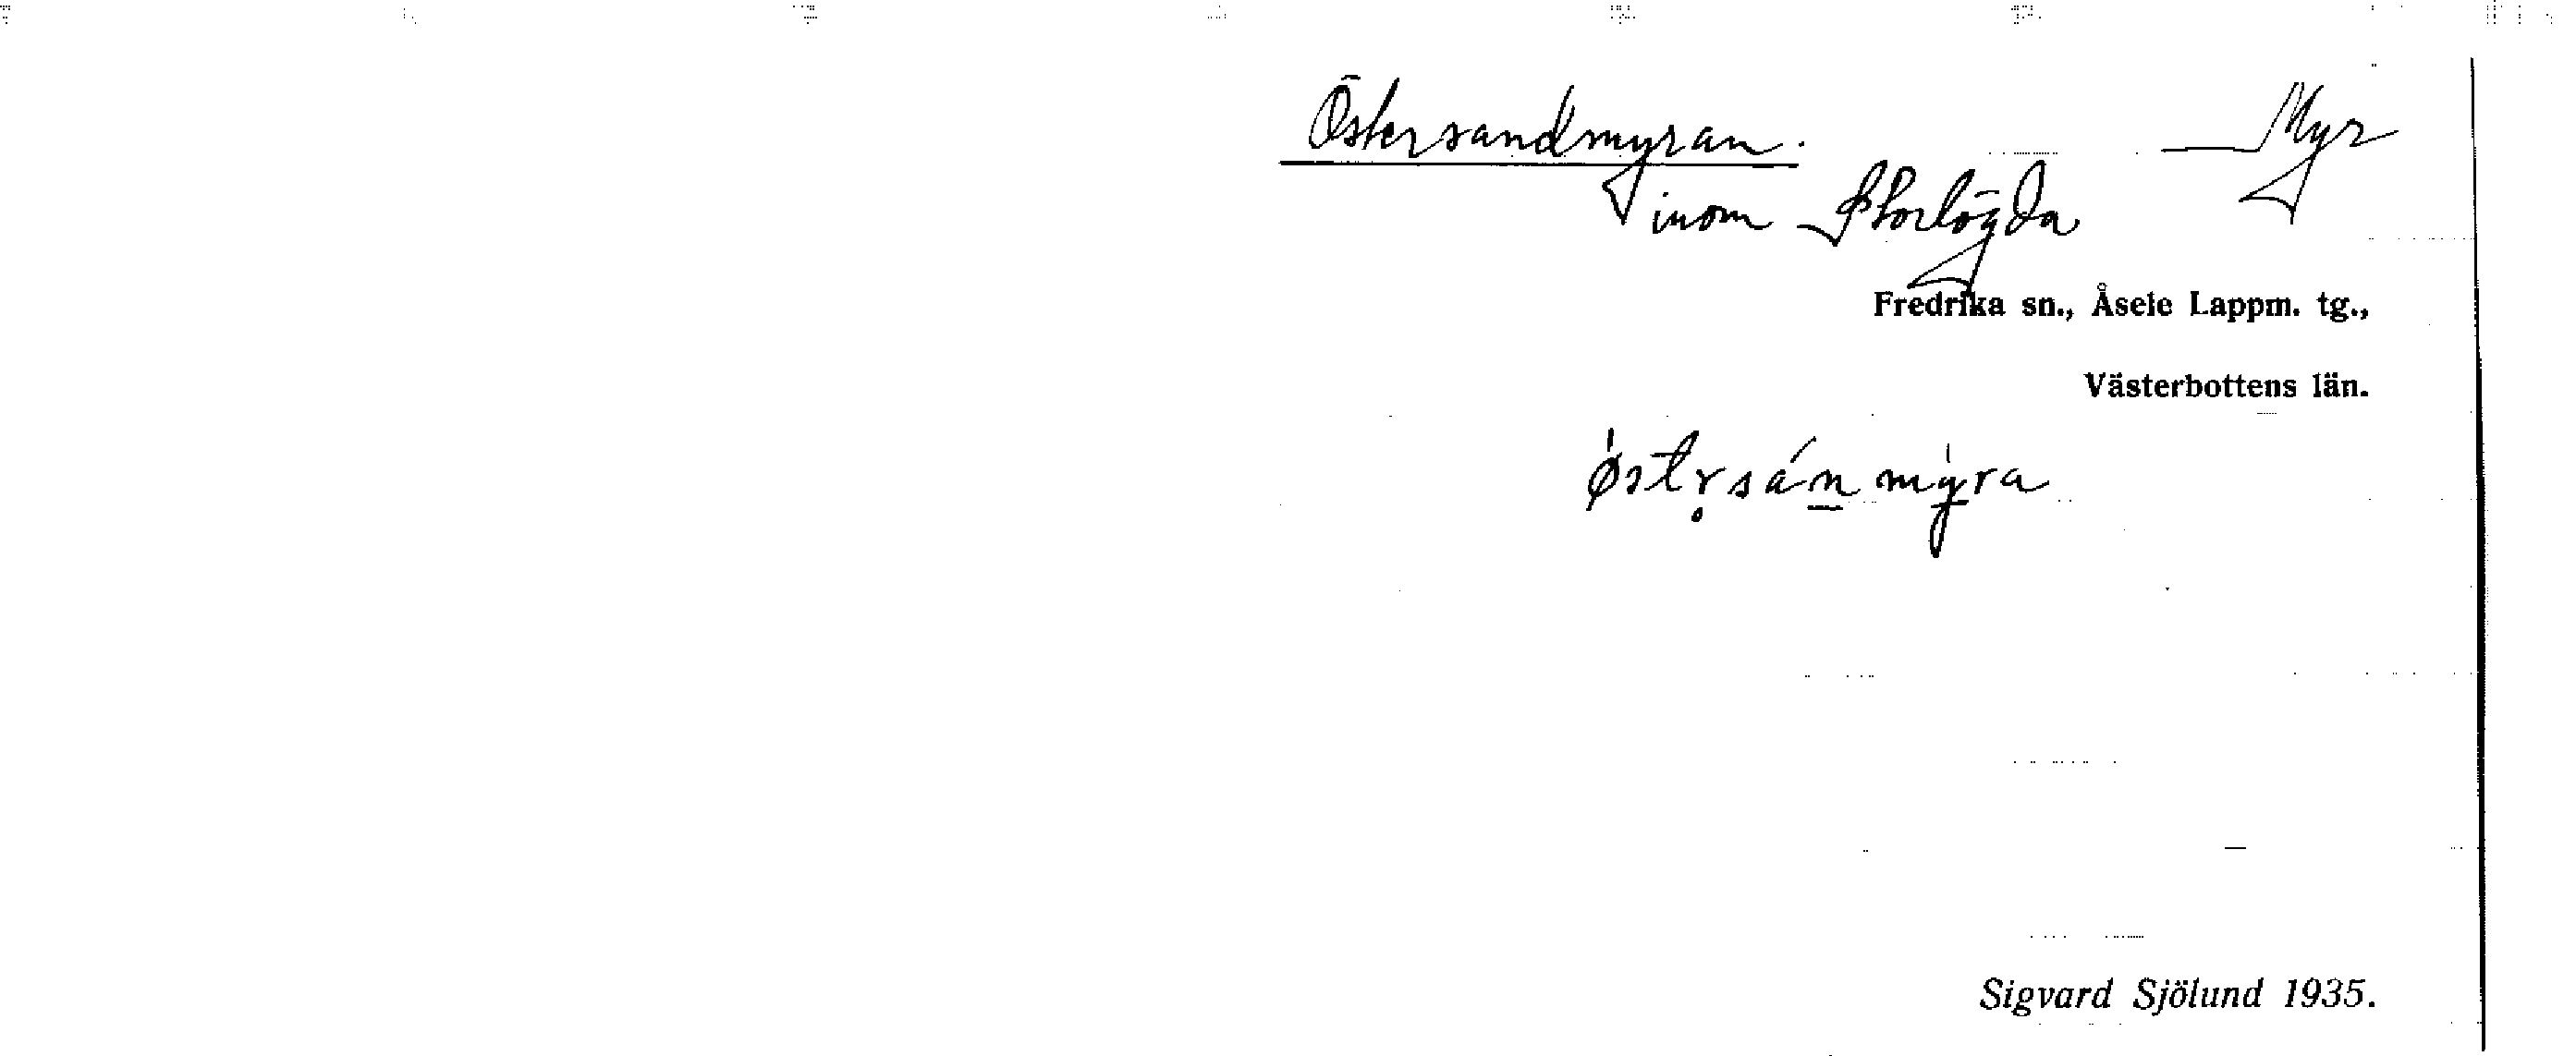 Östersandmyran. Myr
inom Storlögda
Fredrika sn., Åsele Lappm. tg.,
Västerbottens län.
østr̥sánmýra
Sigvard Sjölund 1935.